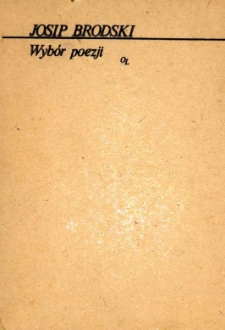 JOSIP BRODSKI
Wybór poezji
OL